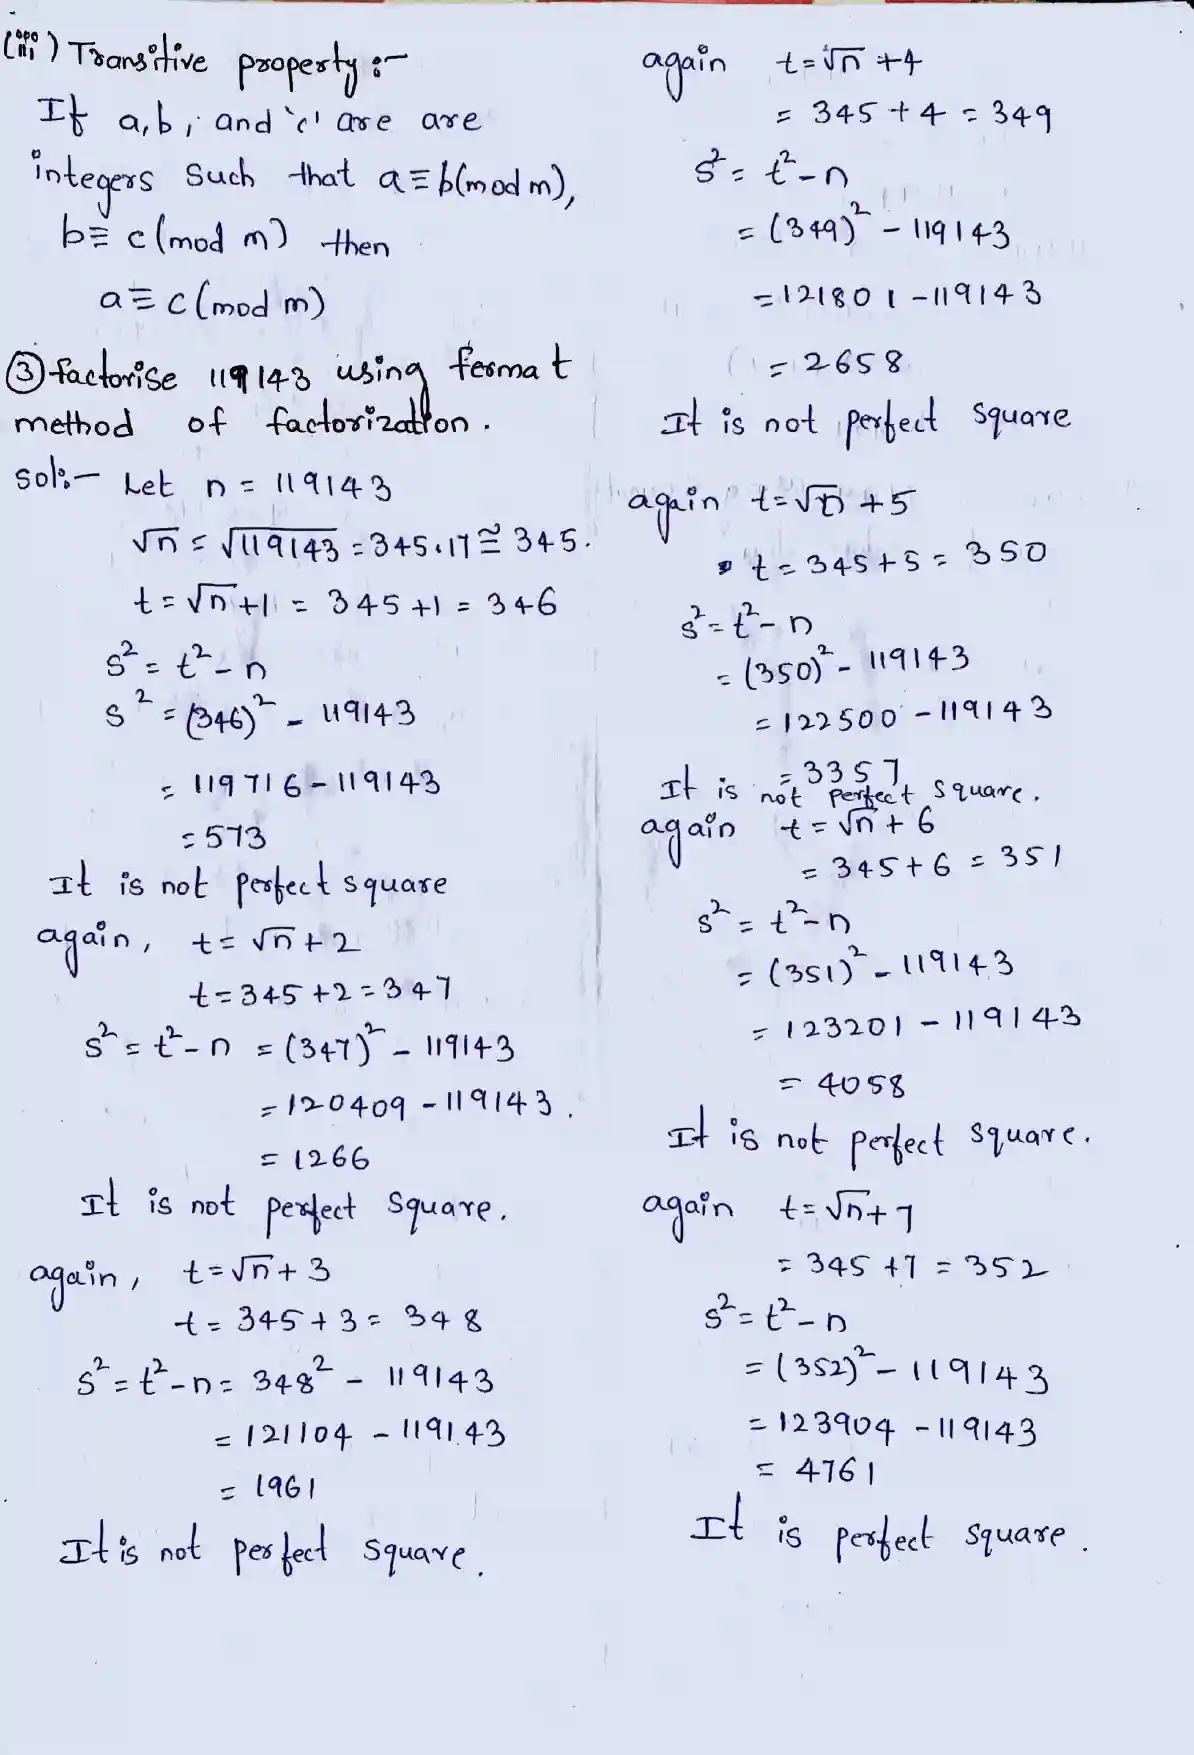 (iii) Transitive property :-
If a, b, and 'c' are are
integers such that a ≡ b(mod m),
b ≡ c(mod m) then
a ≡ c (mod m)
③ factorise 119143 using fermat
method of factorization.
sol:- Let n = 119143
√n = √119143 = 345.17 ≅ 345.
t = √n+1 = 345+1 = 346
s² = t² - n
s² = (346)² - 119143
= 119716 - 119143
= 573
It is not perfect square
again, t = √n+2
t = 345+2 = 347
s² = t² - n = (347)² - 119143
= 120409 - 119143.
= 1266
It is not perfect square.
again, t = √n+3
t = 345+3 = 348
s² = t² - n = 348² - 119143
= 121104 - 119143
= 1961
It is not perfect square.
again t = √n+4
= 345+4 = 349
s² = t² - n
= (349)² - 119143
= 121801 - 119143
= 2658
It is not perfect square
again t = √n+5
t = 345+5 = 350
s² = t² - n
= (350)² - 119143
= 122500 - 119143
= 3357
It is not perfect square.
again t = √n+6
= 345+6 = 351
s² = t² - n
= (351)² - 119143
= 123201 - 119143
= 4058
It is not perfect square.
again t = √n+7
= 345+7 = 352
s² = t² - n
= (352)² - 119143
= 123904 - 119143
= 4761
It is perfect square.